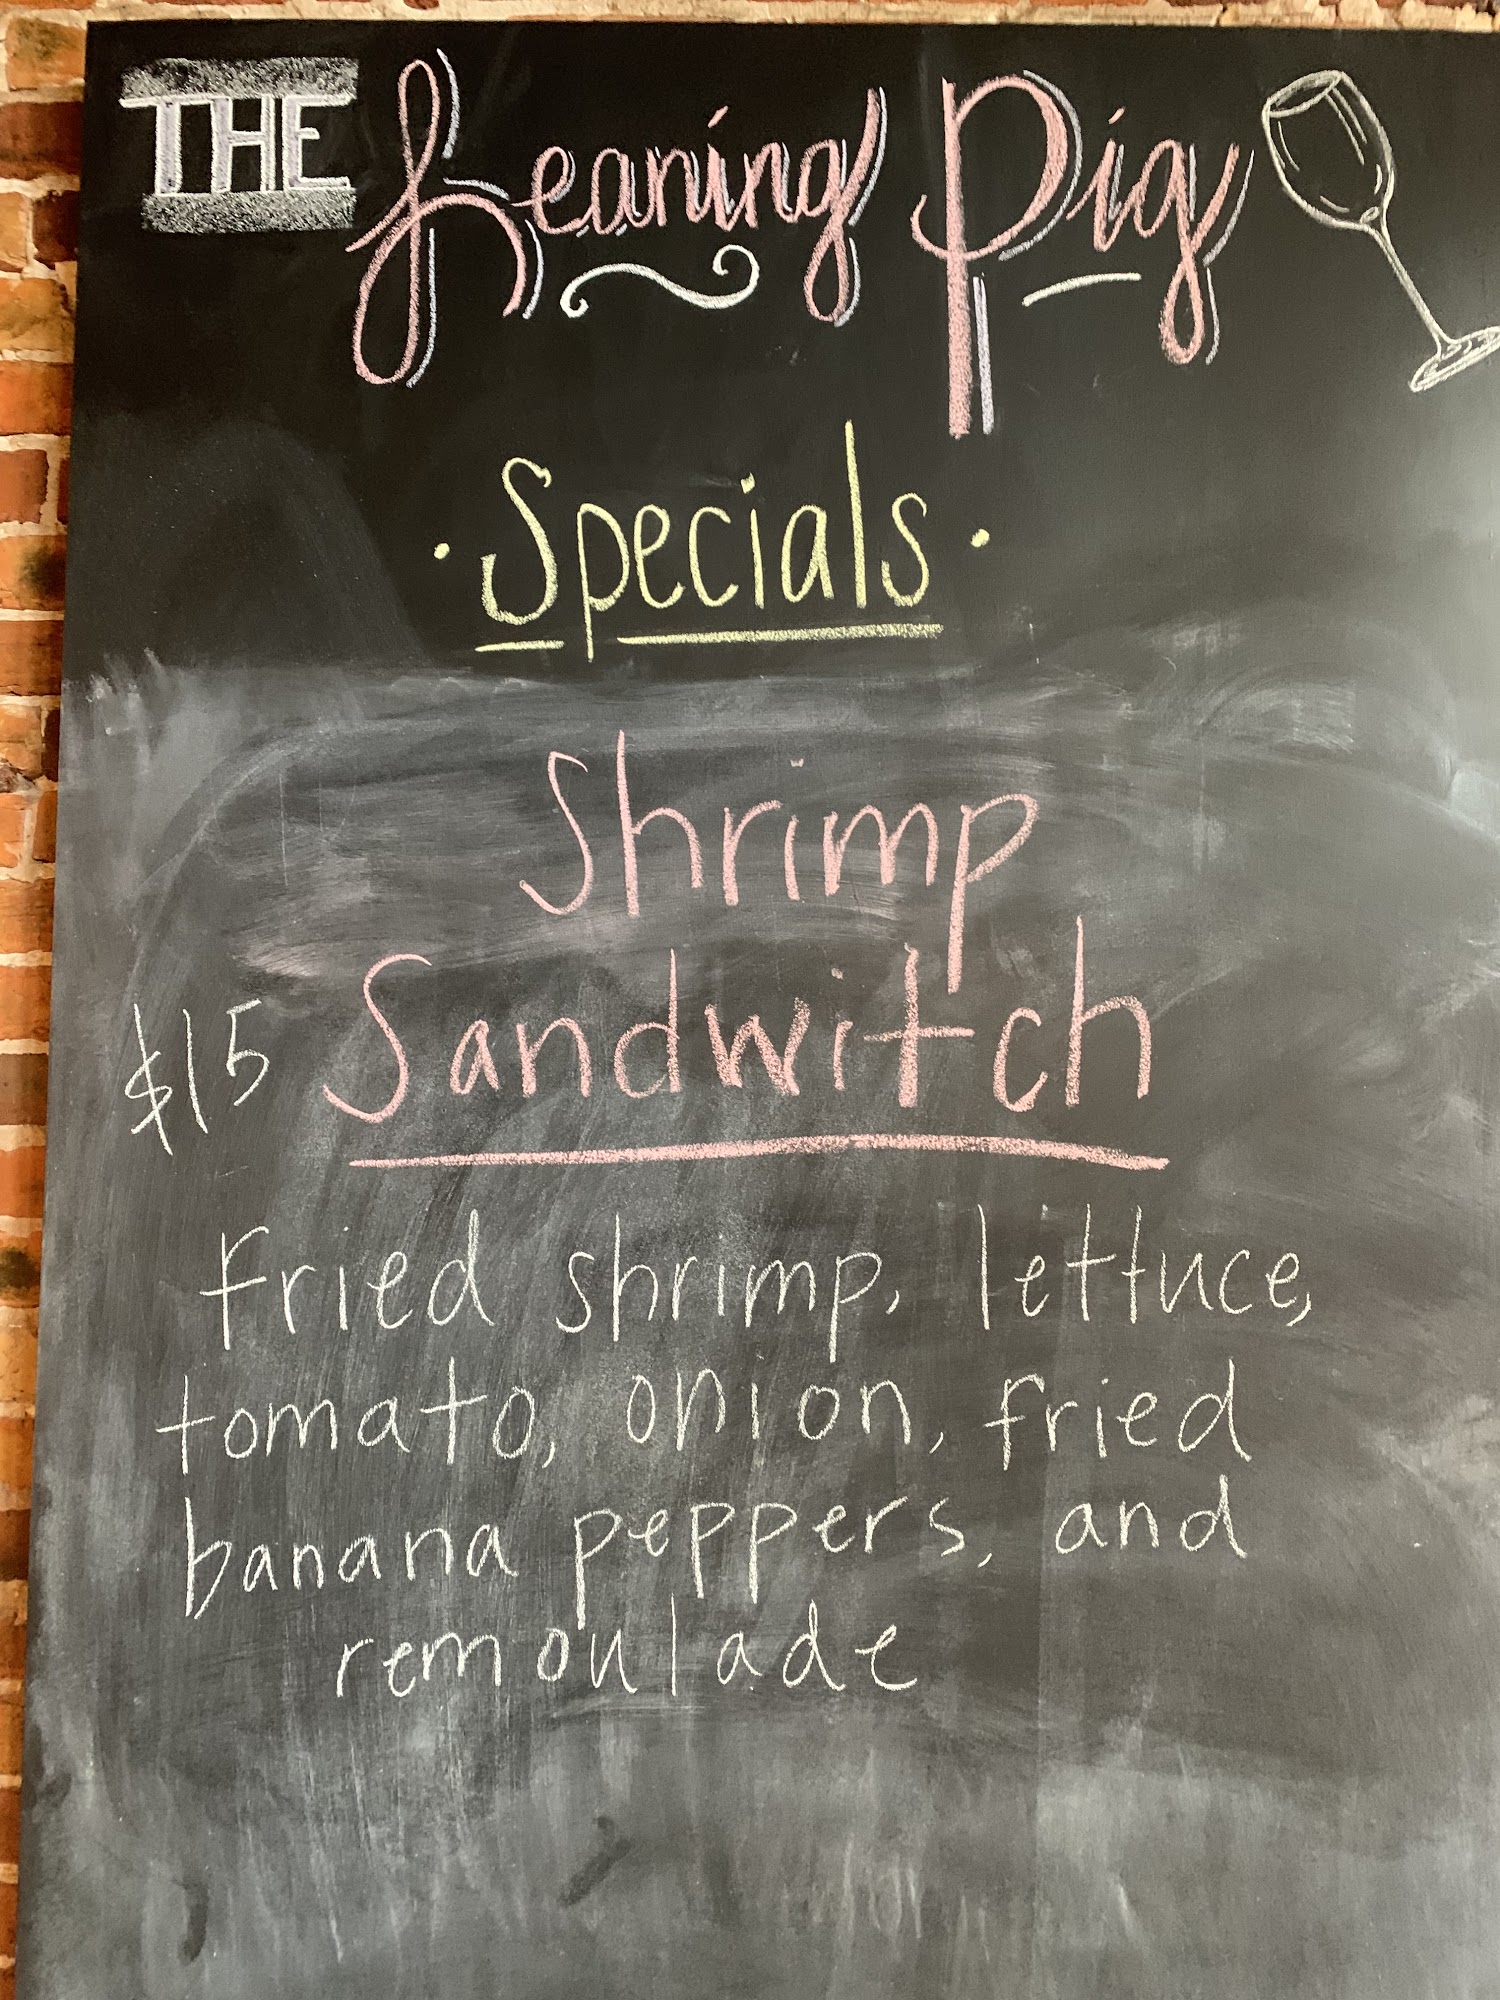 THE Leaning Pig
Specials
Shrimp
$15 Sandwitch
Fried shrimp, lettuce,
tomato, onion, fried
banana peppers, and
remoulade